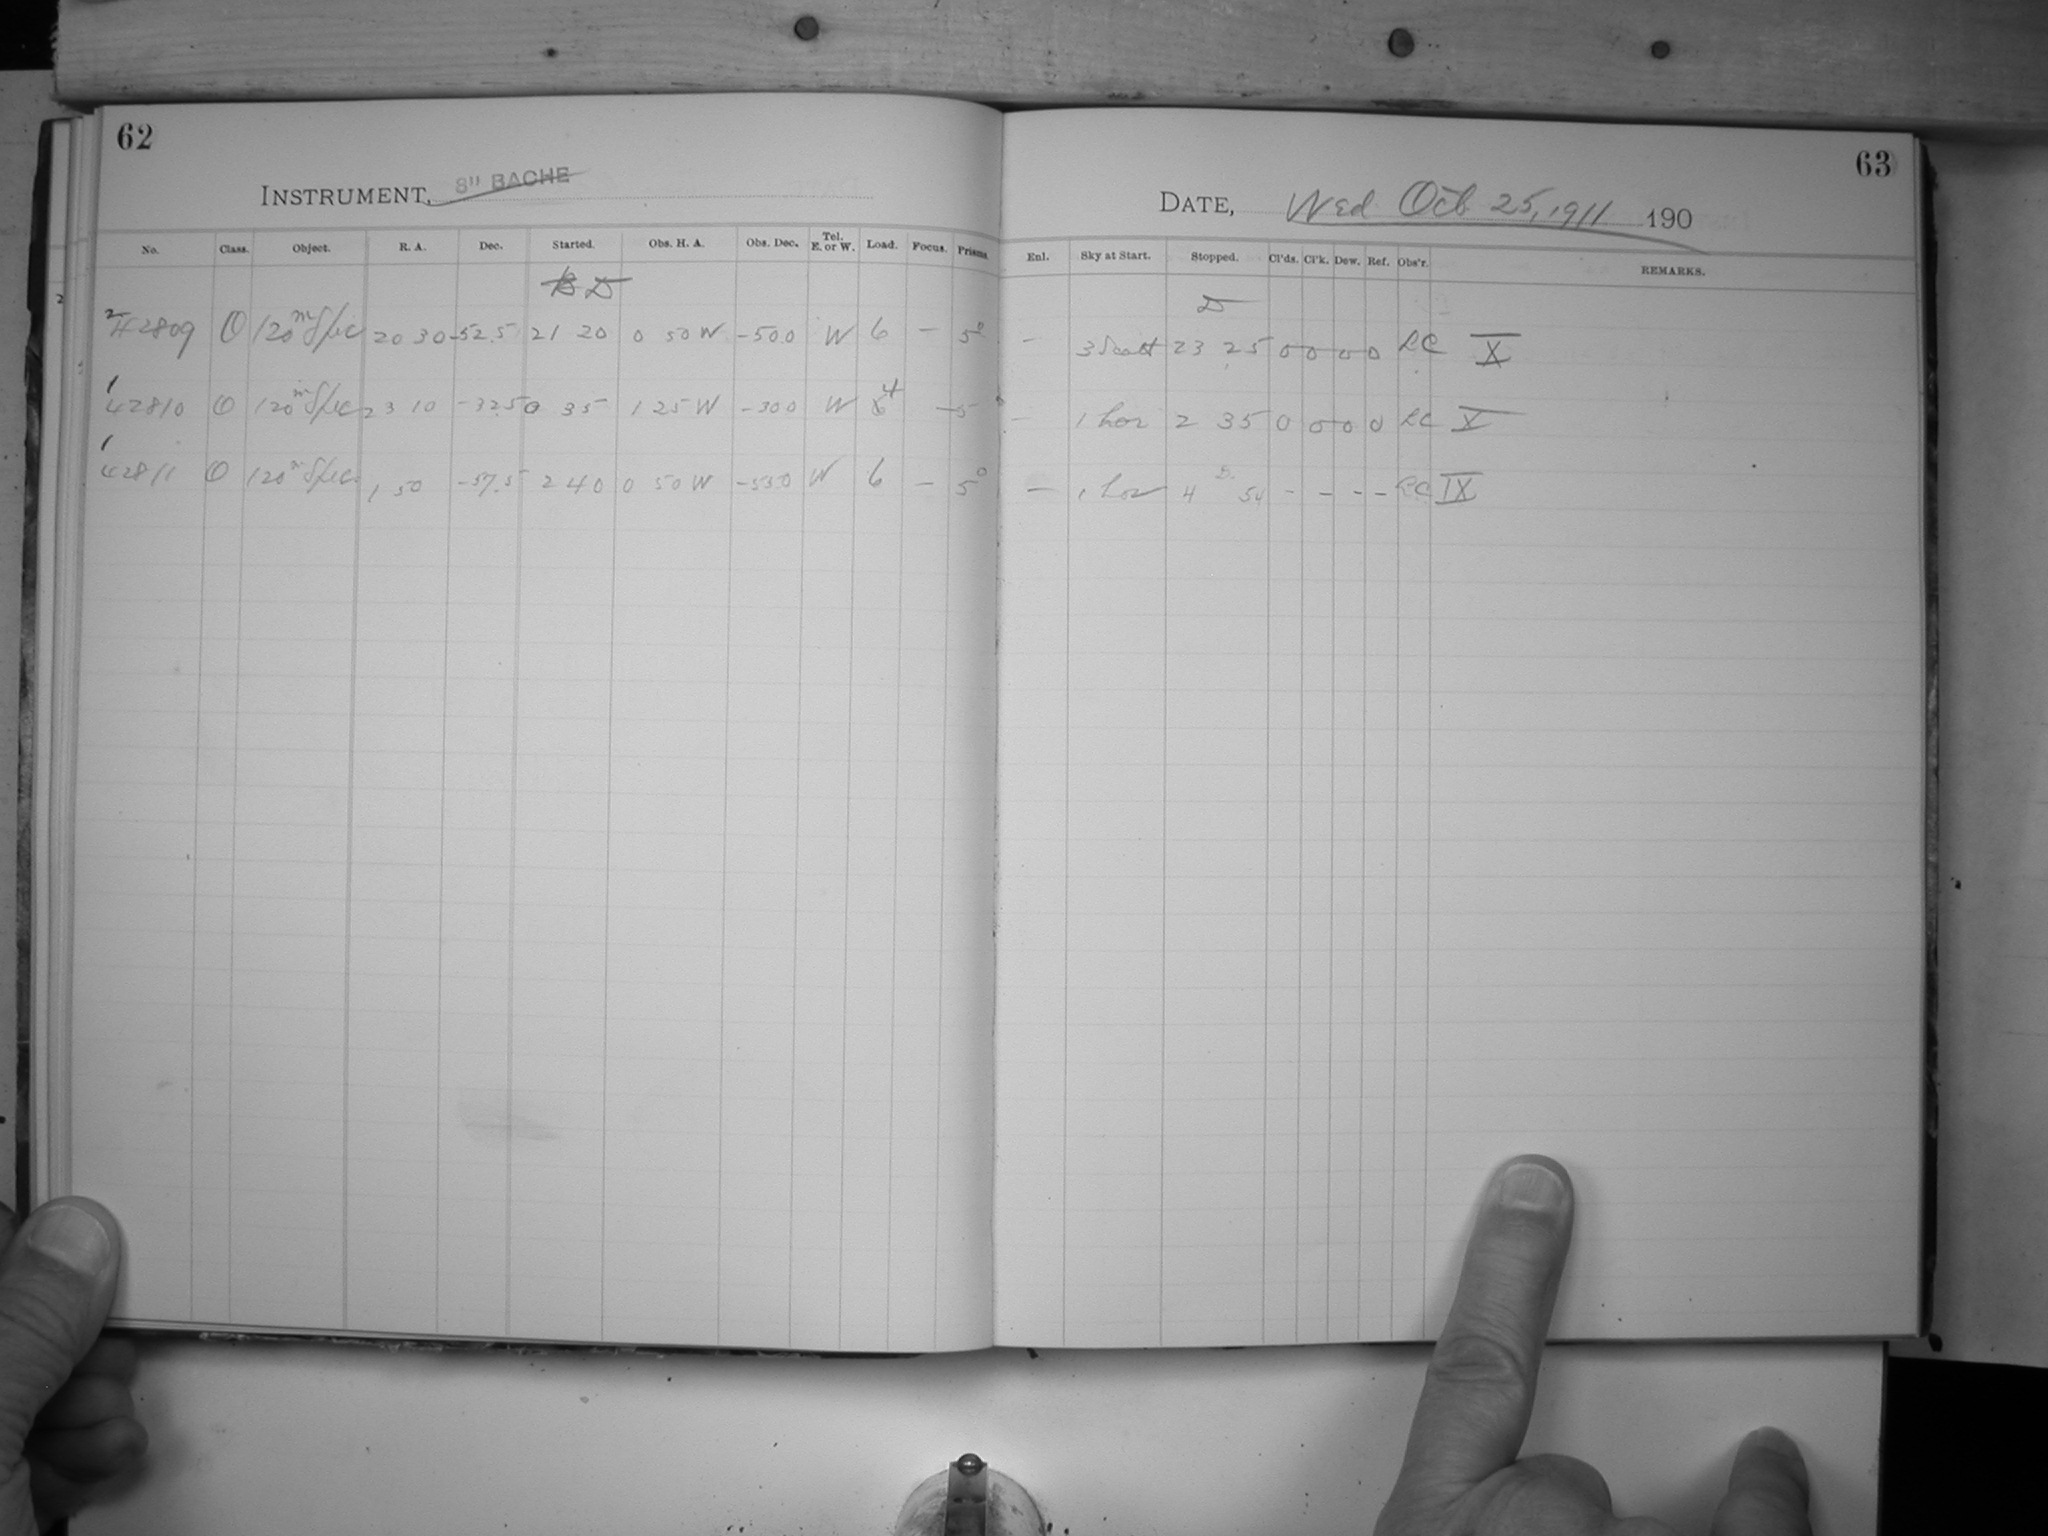 62
INSTRUMENT, 8" BACHE
No. Class. Object. R. A. Dec. Started. Obs. H. A. Obs. Dec. Tel. E. or W. Load. Focus. Prisms.
D
2 42809 O 120m Spec 20 30 -52.5 21 20 0 50 W -50.0 W 6 - 5°
1 42810 O 120m Spec 23 10 -32.5 0 35 1 25 W -30.0 W 4 - 5
1 42811 O 120m Spec 1 50 -57.5 2 40 0 50 W -55.0 W 6 - 5°
63
DATE, Wed Oct 25, 1911 190
Enl. Sky at Start. Stopped. Cl'ds. Cl'k. Dew. Ref. Obs'r. REMARKS.
D
- 3 Scatt 23 25 0 0 0 0 X
- 1 hor 2 35 0 0 0 0 X
- 1 hor 4 54 - - - - IX